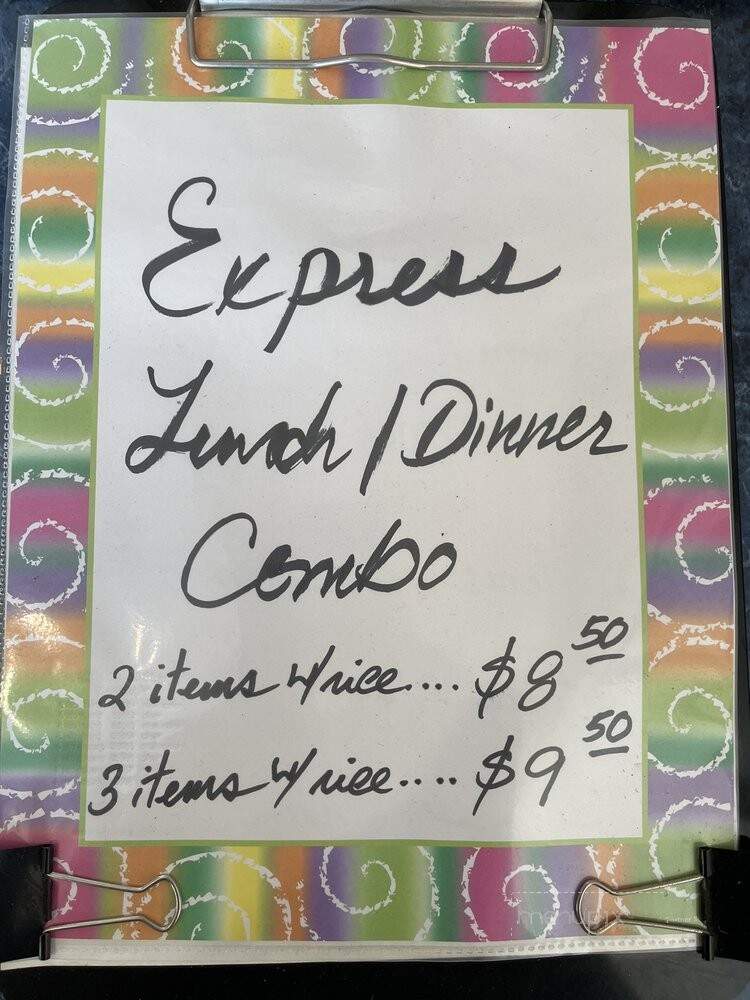 Express
Lunch / Dinner
Combo
2 items w/rice.... $8 50
3 items w/rice.... $9 50
menupix